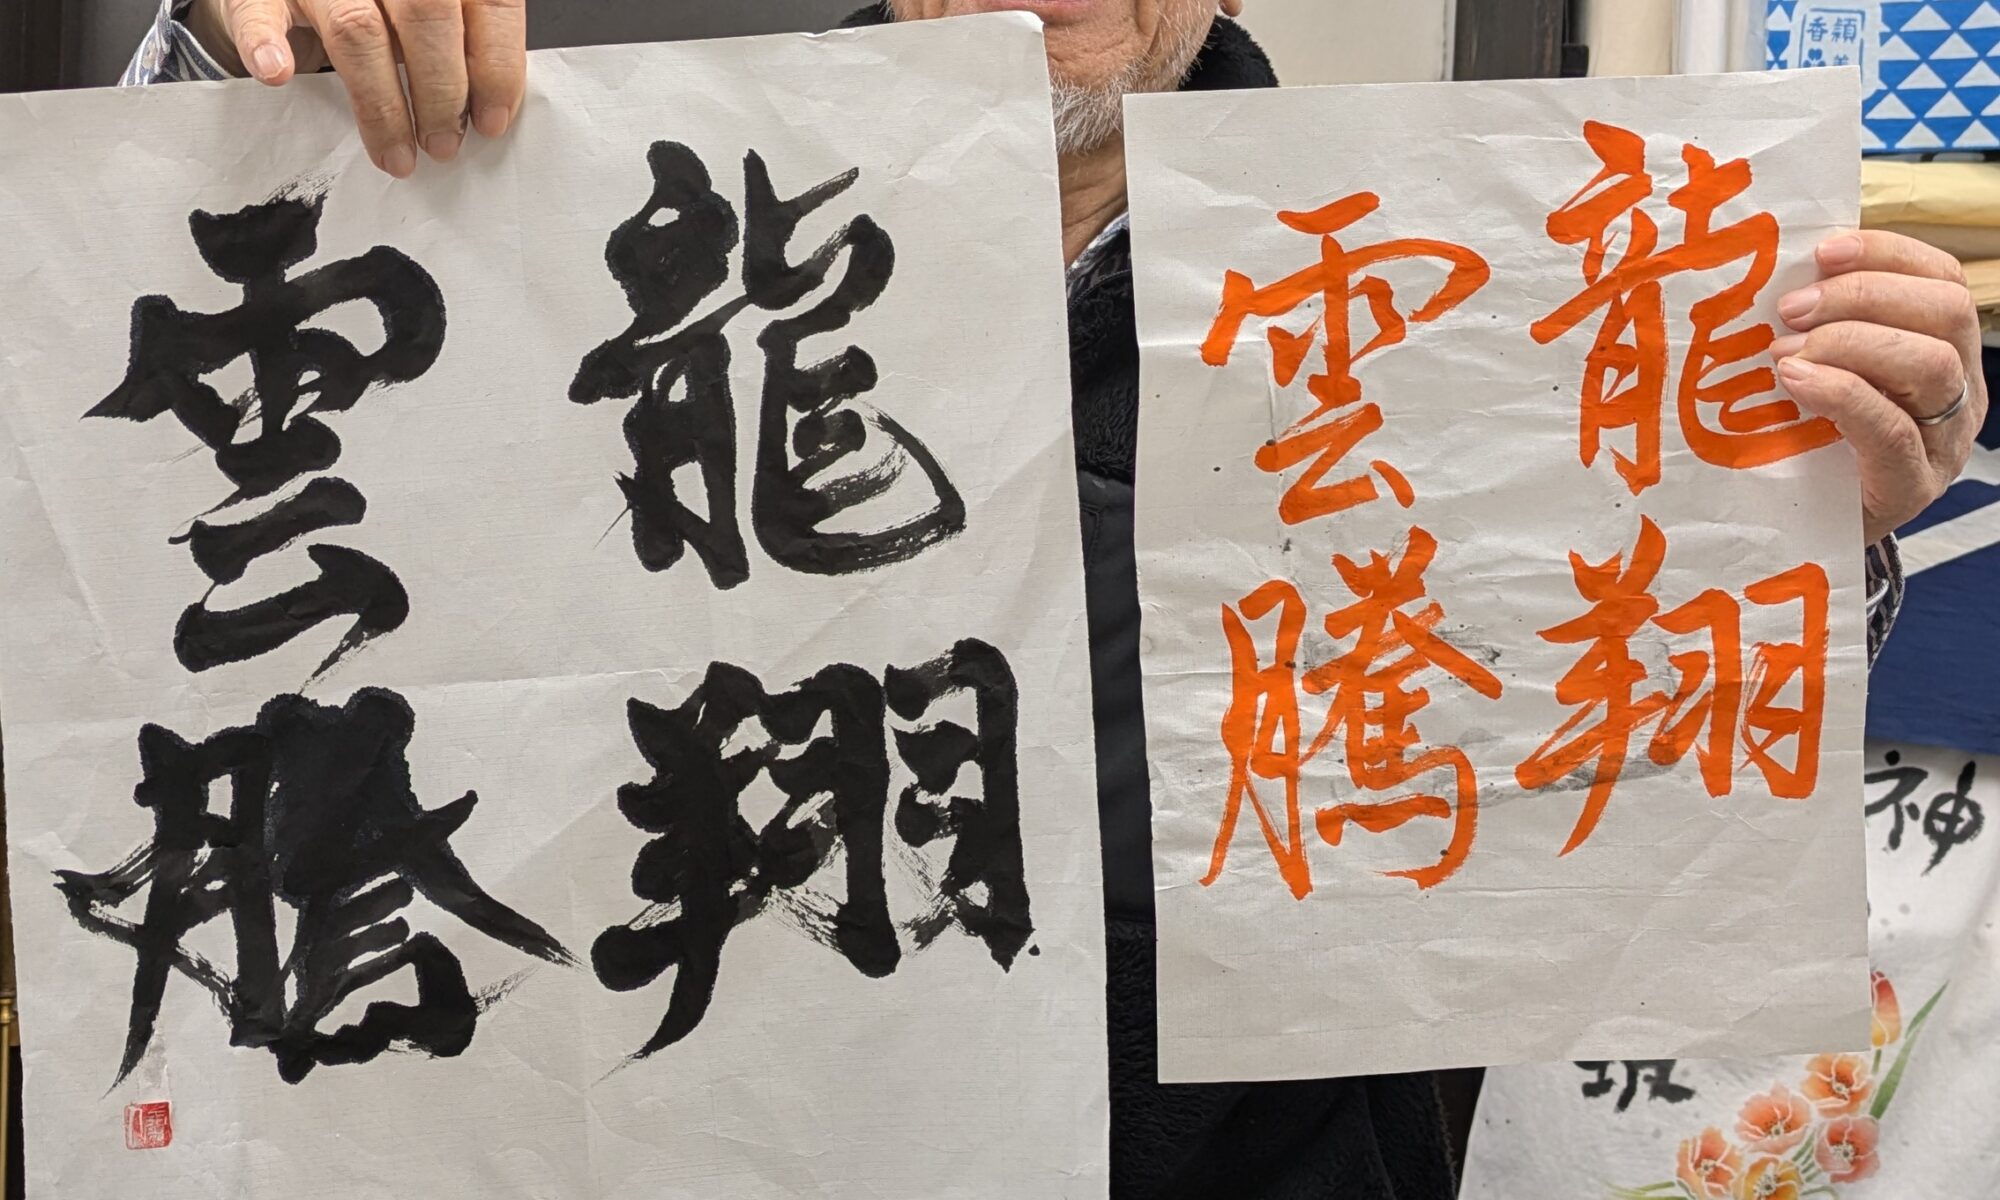 龍翔
雲騰
龍翔
雲騰
香穎
神